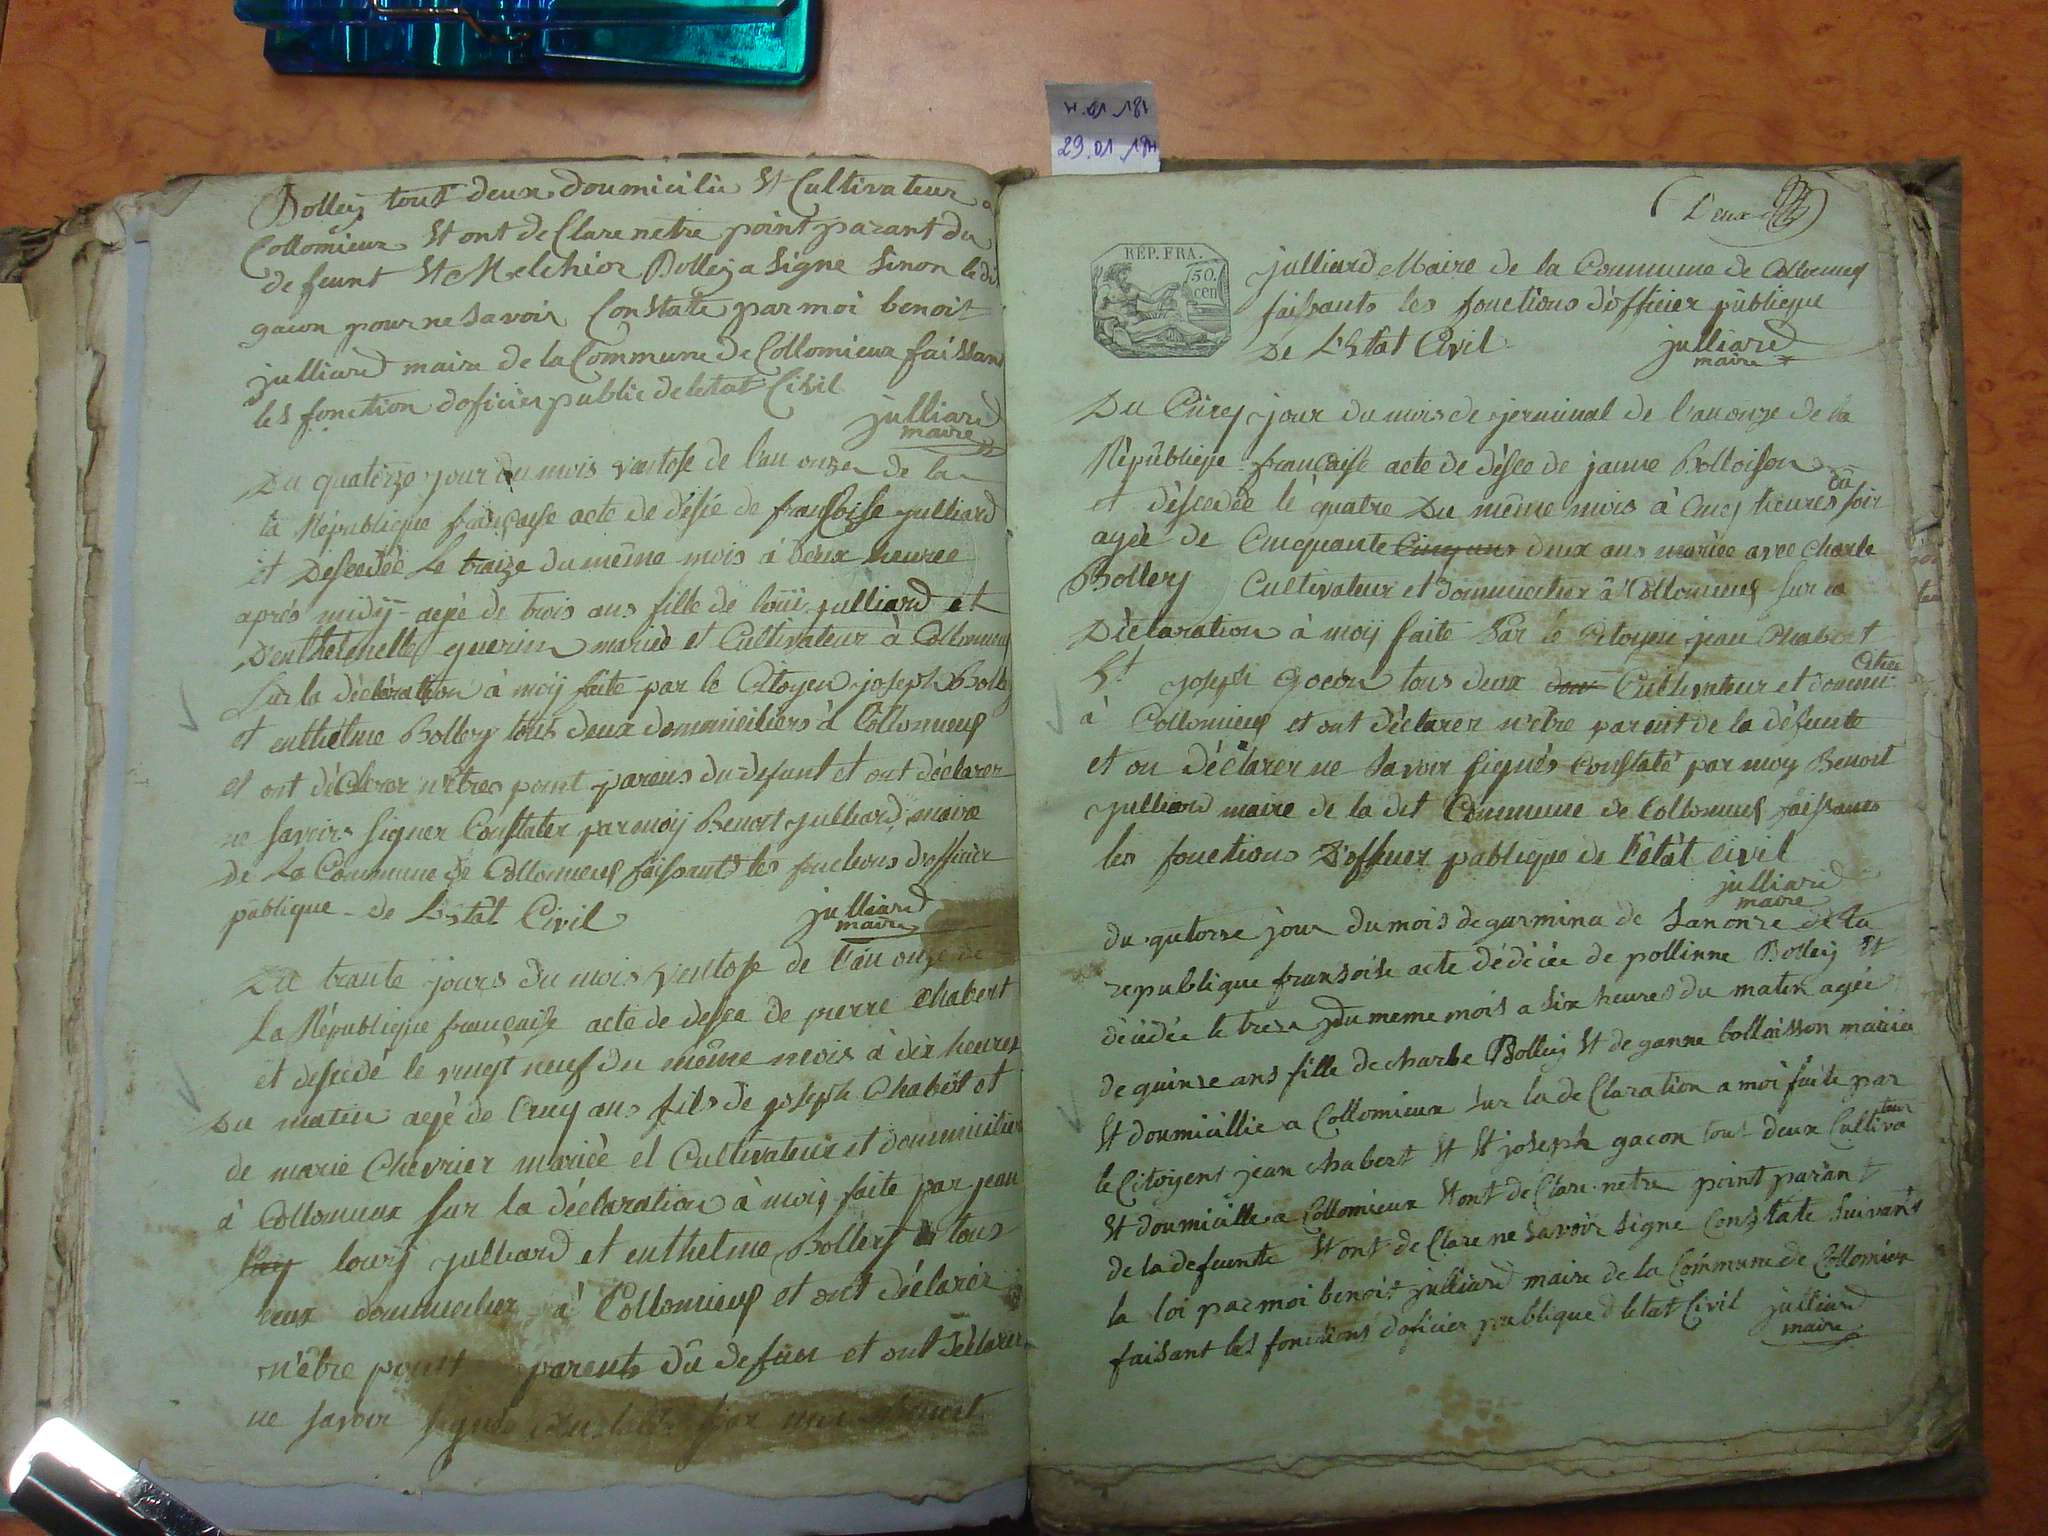 Bolley tout deux doumicilie St Cultivateur a
Collomieux St ont de Clare netre point parant du
defeunt St Melchior Bolley a Signe Sinon le dit
gacon pour ne Savoir Constate par moi benoit
julliard maire de la Commune de Collomieux faissan
les fonction doficier public de letat Civil
julliard
maire
Du quatorze jour du mois ventose de l'an onze de la
la République française acte de désée de françoise julliard
et Desceédée Le traize du même mois à deux heures
après midÿ agé de trois ans fille de loüi julliard et
D'enthelmette guerin mariée et Cultivateur à Collomieux
Sur la déclaration à moÿ faite par le Citoyen joseph Bolle
et enthelme Bolley tous deux dommiciliers à Collomieux
et ont déclarer n'êtres point parens du defunt et ont déclarer
ne savoirs signer Constater par moÿ Benoit julliard maire
de La Commune de Collomieux faissant les fonctions d'officier
publique de L'Etât Civil
julliard
maire
Du trante jours du mois ventose de l'an onze de
La République française acte de desée de pierre Chabert
et desedé le vingt neuf du même mois à dix heures
Du matin agé de Cinq ans fils de joseph Chabert et
de marie Chevrier mariée et Cultivateur et dommicilier
à Collomieux sur la déclaration à moiÿ faite par jean
louiÿ julliard et enthelme Bolley tous
deux dommicilier à Collomieux et ont déclarér
n'être point parents dû defun et ont déclarer
ne savoir signér Constaté par moi Benoit
29.01
RÉP. FRA.
50
cen
julliard Maire de la Commune de Collomieux
faissants les fonctions d'officier publique
De L'Etât Civil
julliard
maire
Du Cinq jour du mois de jerminal de l'an onze de la
République française acte de désée de janne Bolloisson
et désceédée le quatre Du même mois à Cinq heures du soir
agée de Cinquante Cinq ans deux ans mariée avec Charle
Bolley Cultivateur et dommicilier à Collomieux sur la
Déclaration à moÿ faite Par le Citoyen jean Chabert
St joseph Gocon tous deux Cultivateur et dommicilier
à Collomieux et ont déclarer n'etre parent de la défunte
et on déclarer ne savoir signés Constaté par moy Benoit
julliard maire de la dit Commune de Collomieux faissant
les fonctions D'officier publique de l'état civil
julliard
maire
du qutorse jour du mois de garmina de Lanonze de la
republique fransoise acte dédécée de pollinne Bolley St
décédée le treze du meme mois a six heures du maten agée
de quinze ans fille de charle Bolley St de ganne bollaisson mariee
St doumicillie a Collomieux sur la de Claration a moi faite par
le Citoyens jean chabert St St joseph gacon tout deux Cultivateur
St doumicille a Collomieux St ont de Clare netre point parant
de la defeunte St ont de Clare ne Savoir Signe Constate Suivant
la loi par moi benoit julliard maire de la Commune de Collomieux
faisant les fonctions doficier publique d letat Civil julliard
maire